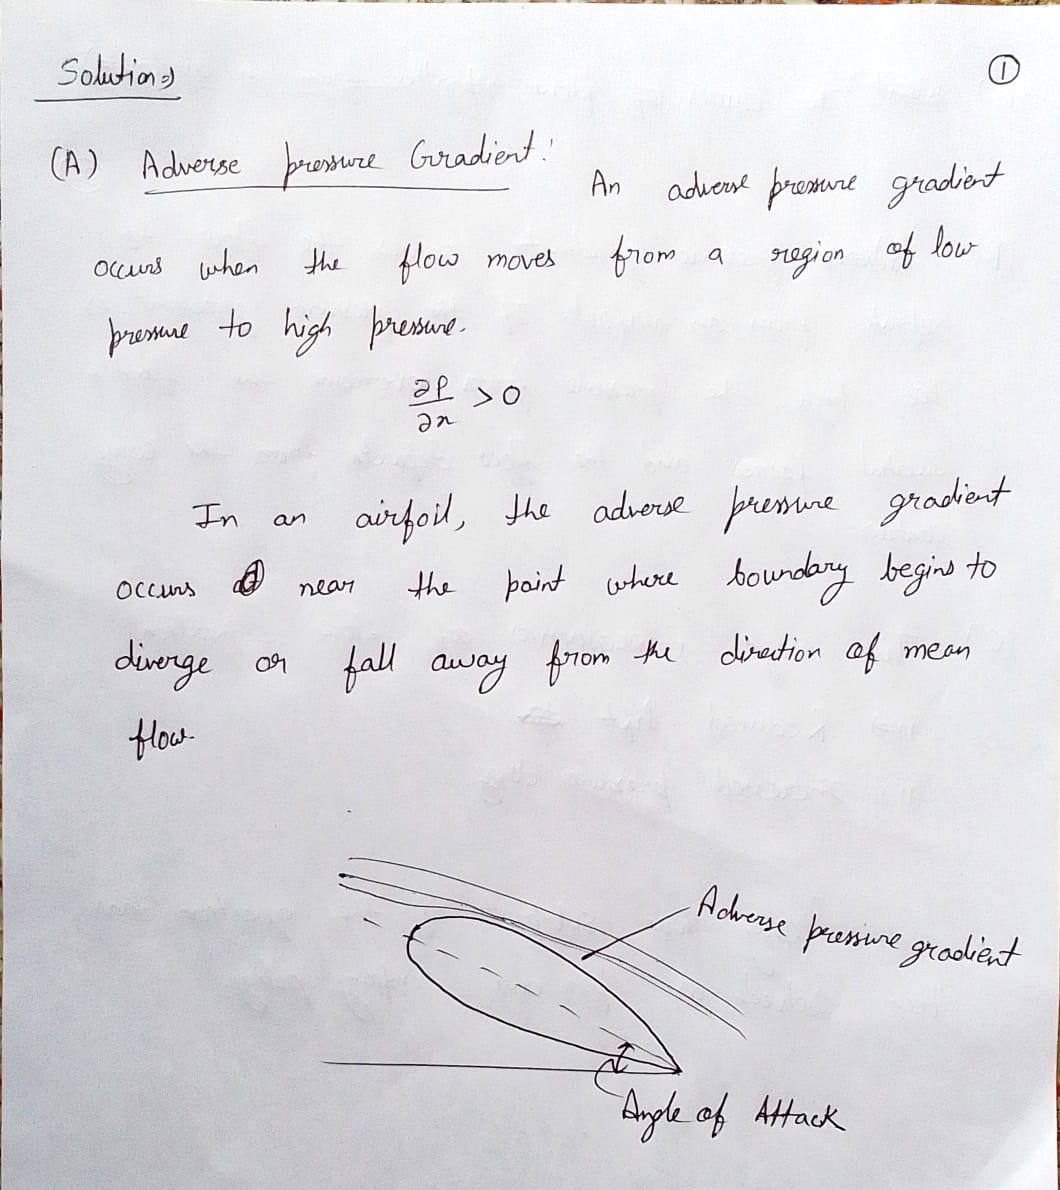 Solution ⇒
①
(A) Adverse pressure Gradient:
An adverse pressure gradient
occurs when the flow moves from a region of low
pressure to high pressure.
∂P/∂x >0
In an airfoil, the adverse pressure gradient
occurs near the point where boundary begins to
diverge or fall away from the direction of mean
flow.
Adverse pressure gradient
Angle of Attack